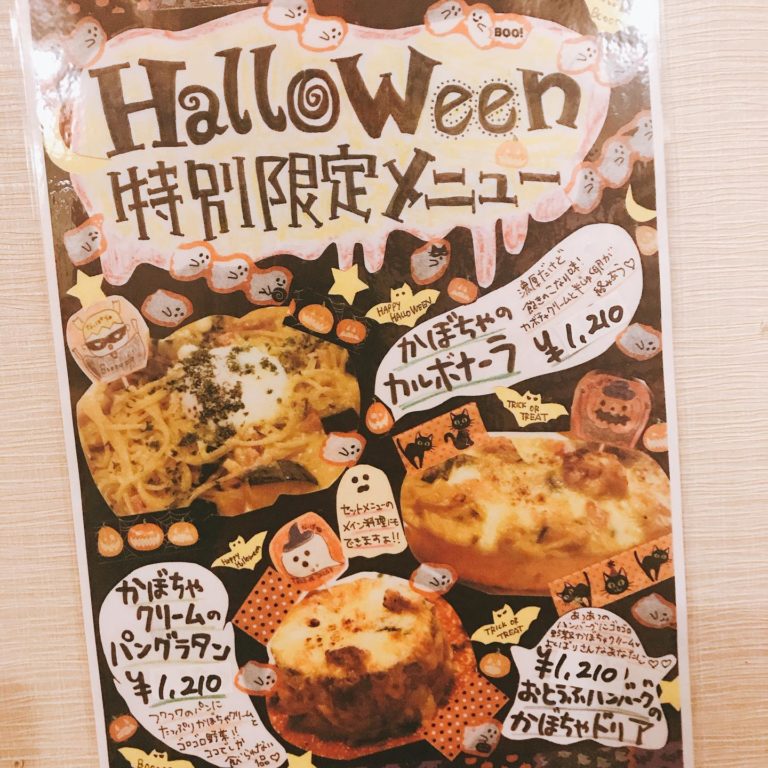 BOO!
HalloWeen
特別限定メニュー
HAPPY
HALLOWEEN
濃厚だけど
飽きのこない味!
カボチャクリームと
絡みあう♡
かぼちゃの
カルボナーラ
¥1,210
TRICK OR
TREAT
セットメニューの
メイン料理にも
できますよ!!
Happy
Halloween
かぼちゃ
クリームの
パングラタン
¥1,210
フワフワのパンに
たっぷりかぼちゃクリームと
ゴロゴロ野菜!!
ココでしか
食べられない
品♡
TRICK OR
TREAT
あつあつの
ハンバーグにゴロゴロ
野菜かぼちゃクリーム♡
よくばりさんなあなたに♡♡
¥1,210
おとうふハンバーグの
かぼちゃドリア